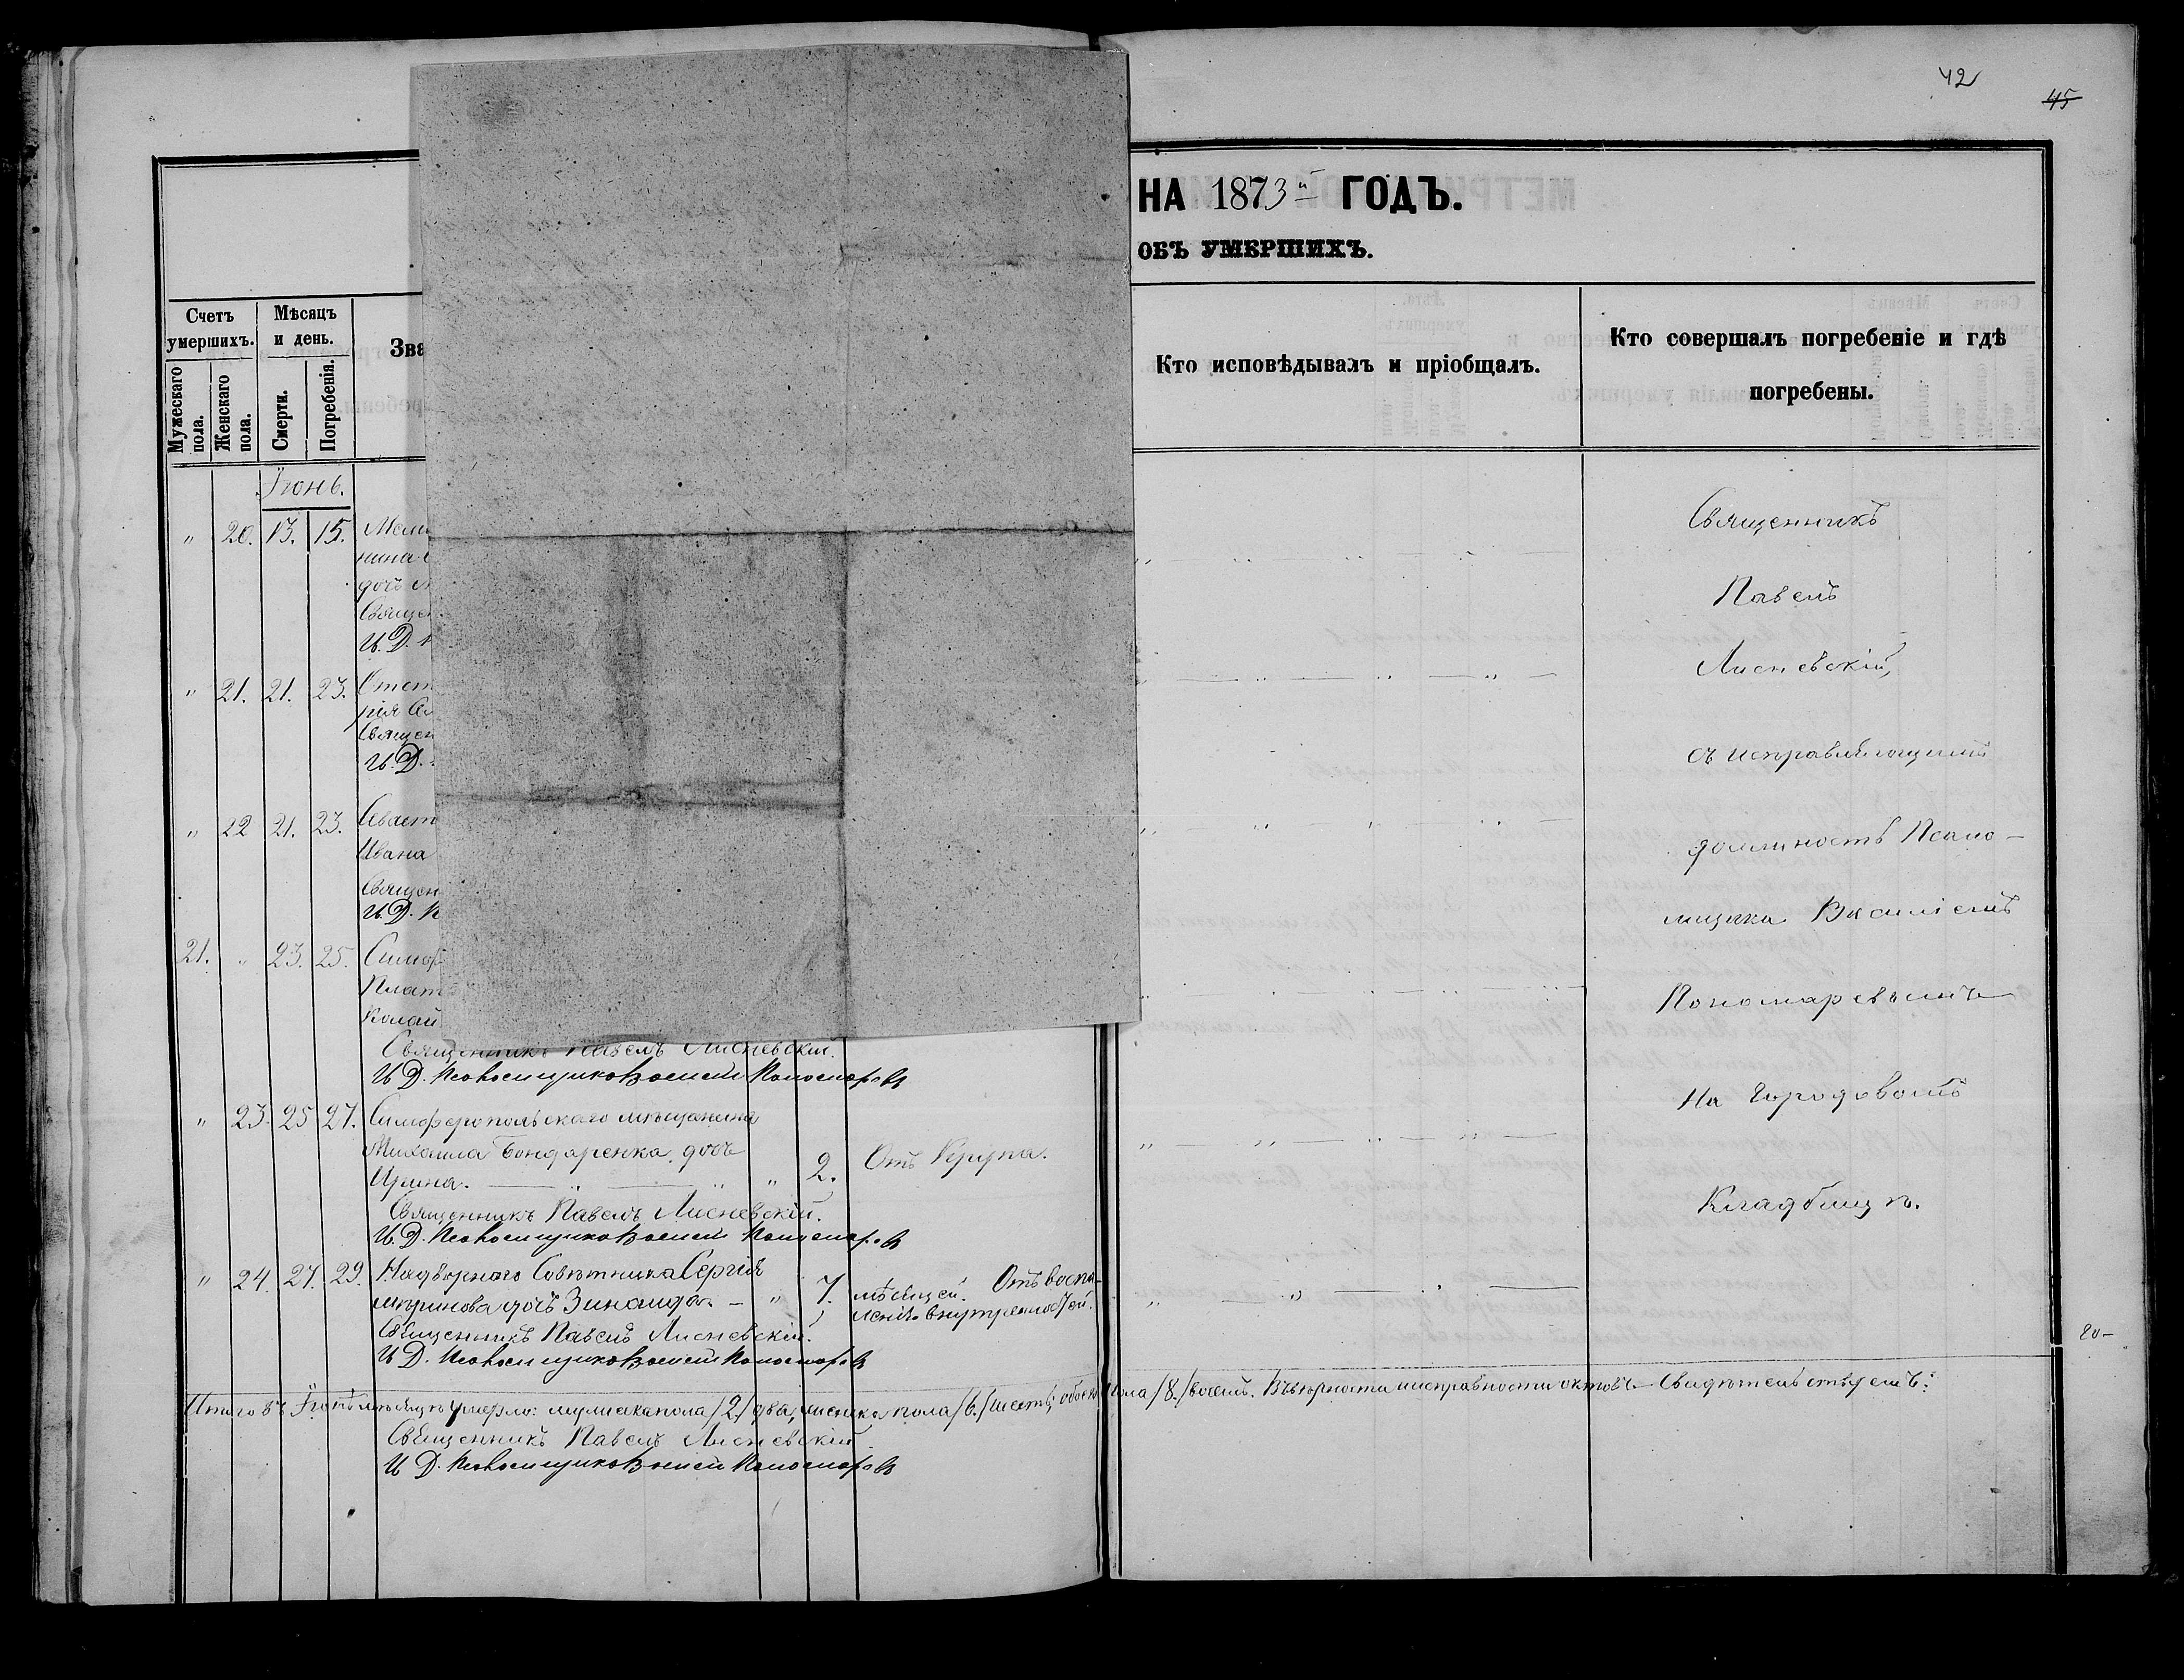 42
45
НА 1873й ГОДЪ.
ОБЪ УМЕРШИХЪ.
Счетъ умершихъ.
Мужескаго пола.
Женскаго пола.
Мѣсяцъ и день.
Смерти.
Погребенія.
Зва
Кто исповѣдывалъ и пріобщалъ.
Кто совершалъ погребеніе и гдѣ
погребены.
Іюнь.
" 20. 13. 15. Мели
нина
дочь
Свящ
И. Д.
" 21. 21. 23. Отст
рія
Священ
И. Д.
" 22 21. 23.
Ивана
Священ
И. Д.
21. " 23. 25. Симф
Плат
Колай
Священникъ Павелъ Лисневскій.
И Д. Псаломщика Василій Пономаревъ
" 23. 25 27. Симферопольскаго мѣщанина
Михаила Бондаренка дочь
Ирина. " " " 2. Отъ Крупа.
Священникъ Павелъ Лисневскій.
И. Д. Псаломщика Василій Пономаревъ
" 24. 27. 29. Надворнаго Совѣтника Сергія
дочь Зинаида. " 7. мѣсяцей. Отъ воспа-
ленія внутренностей.
Священникъ Павелъ Лисневскій.
И Д. Псаломщика Василій Пономаревъ
Священникъ
Павелъ
Лисневскій,
съ исправляющимъ
должность Псало-
мщика Василіемъ
Пономаревымъ
На Городовомъ
Кладбищѣ.
20-
Итого въ Іюнѣ мѣсяцѣ умерло: мужеска пола /2/ два, женска пола /6./ шесть, обоего пола /8./ восемь. Въ вѣрности и исправности актовъ Свидѣтельствуемъ:
Священникъ Павелъ Лисневскій.
И Д. Псаломщика Василій Пономаревъ